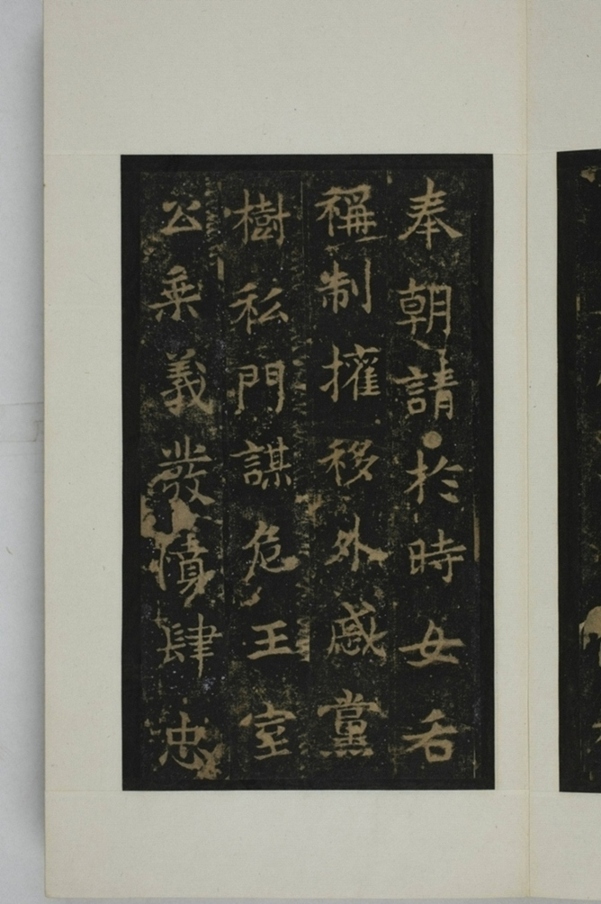 奉朝請於時女后
稱制擁移外戚黨
樹私門謀危王室
公乗義發憤肆忠